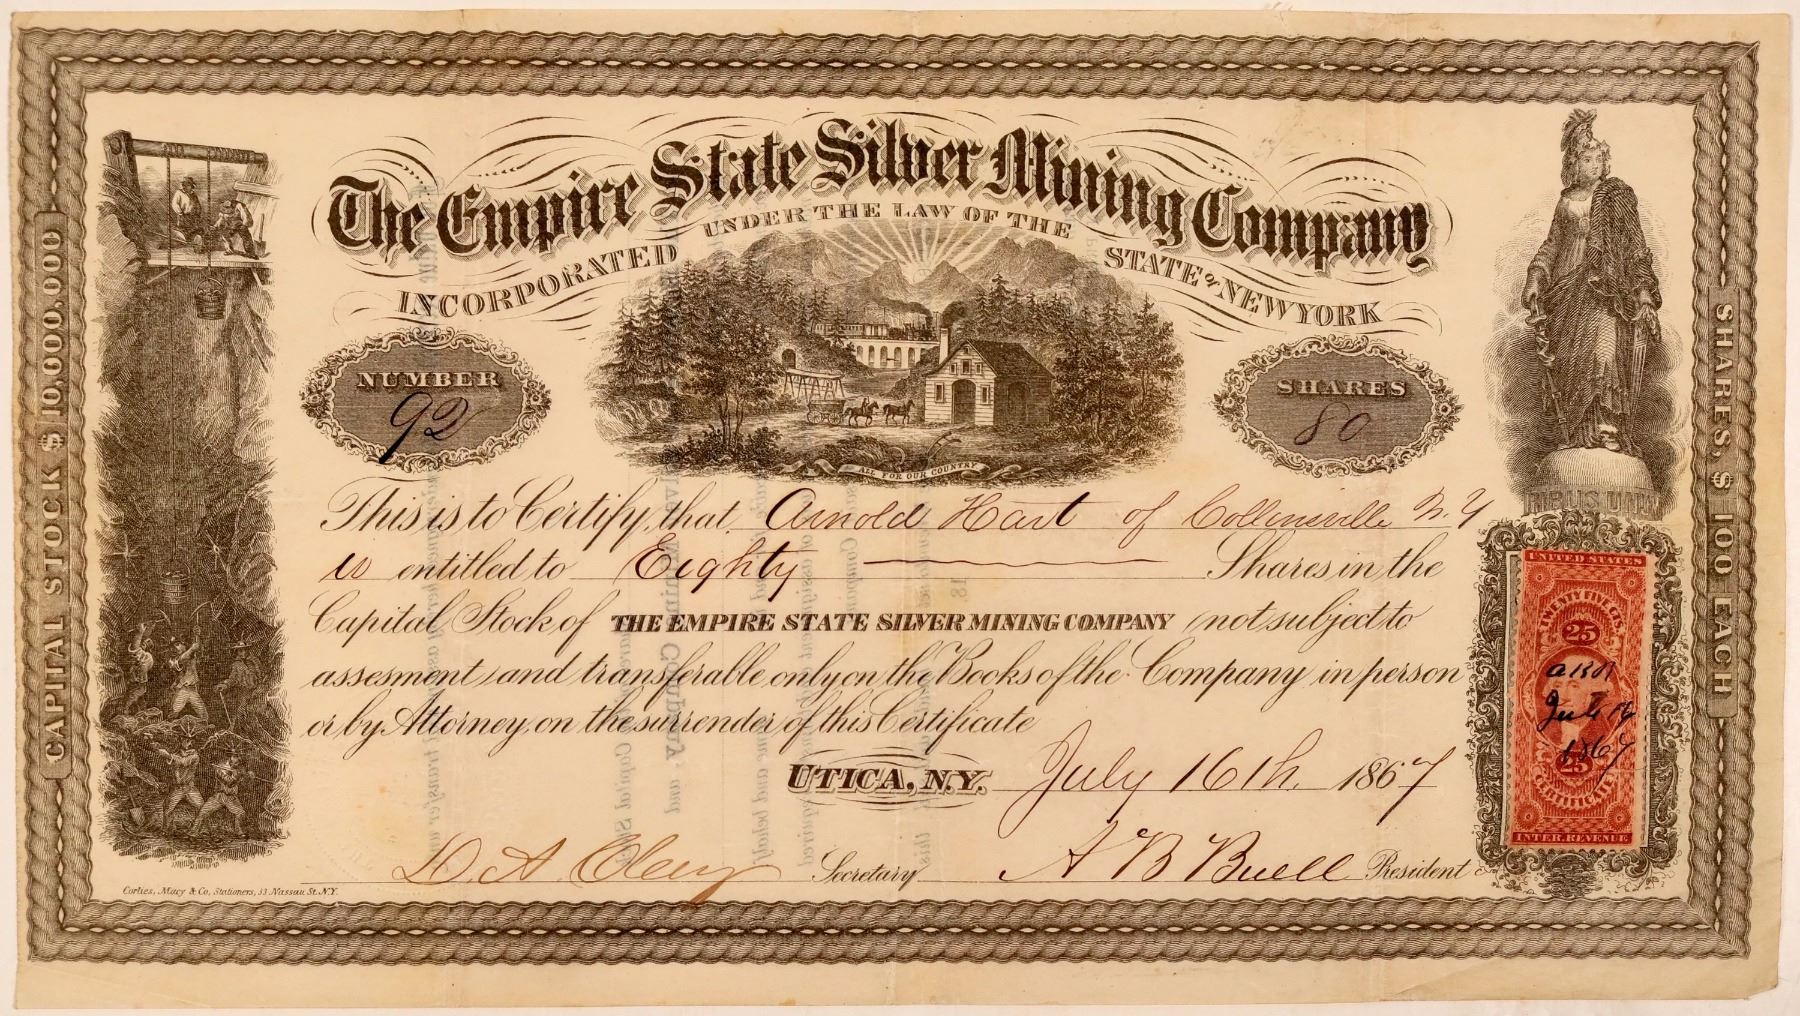 The Empire State Silver Mining Company
INCORPORATED UNDER THE LAW OF THE STATE OF NEW YORK
NUMBER
92
SHARES
80
ALL FOR OUR COUNTRY
CAPITAL STOCK $10,000,000
SHARES, $100 EACH
This is to Certify, that Arnold Hart of Collinsville N.Y
is entitled to Eighty Shares in the
Capital Stock of THE EMPIRE STATE SILVER MINING COMPANY not subject to
assesment and transferable only on the Books of the Company in person
or by Attorney, on the surrender of this Certificate
UTICA, N.Y. July 16th. 1867
Secretary
A B Buell President
Corlies, Macy & Co, Stationers, 33 Nassau St. N.Y.
UNITED STATES
TWENTY FIVE CTS.
25
July 16
1867
25
CERTIFICATE
INTER. REVENUE